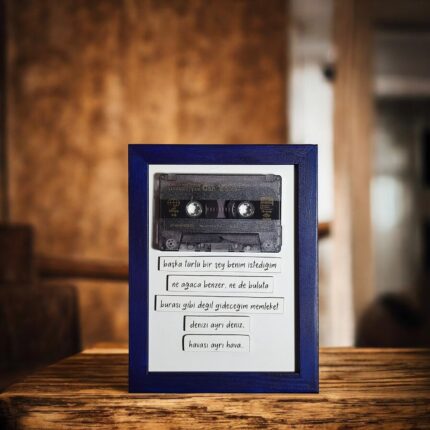 başka türlü bir şey benim istediğim
ne ağaca benzer, ne de buluta
burası gibi değil gideceğim memleket
denizi ayrı deniz,
havası ayrı hava..